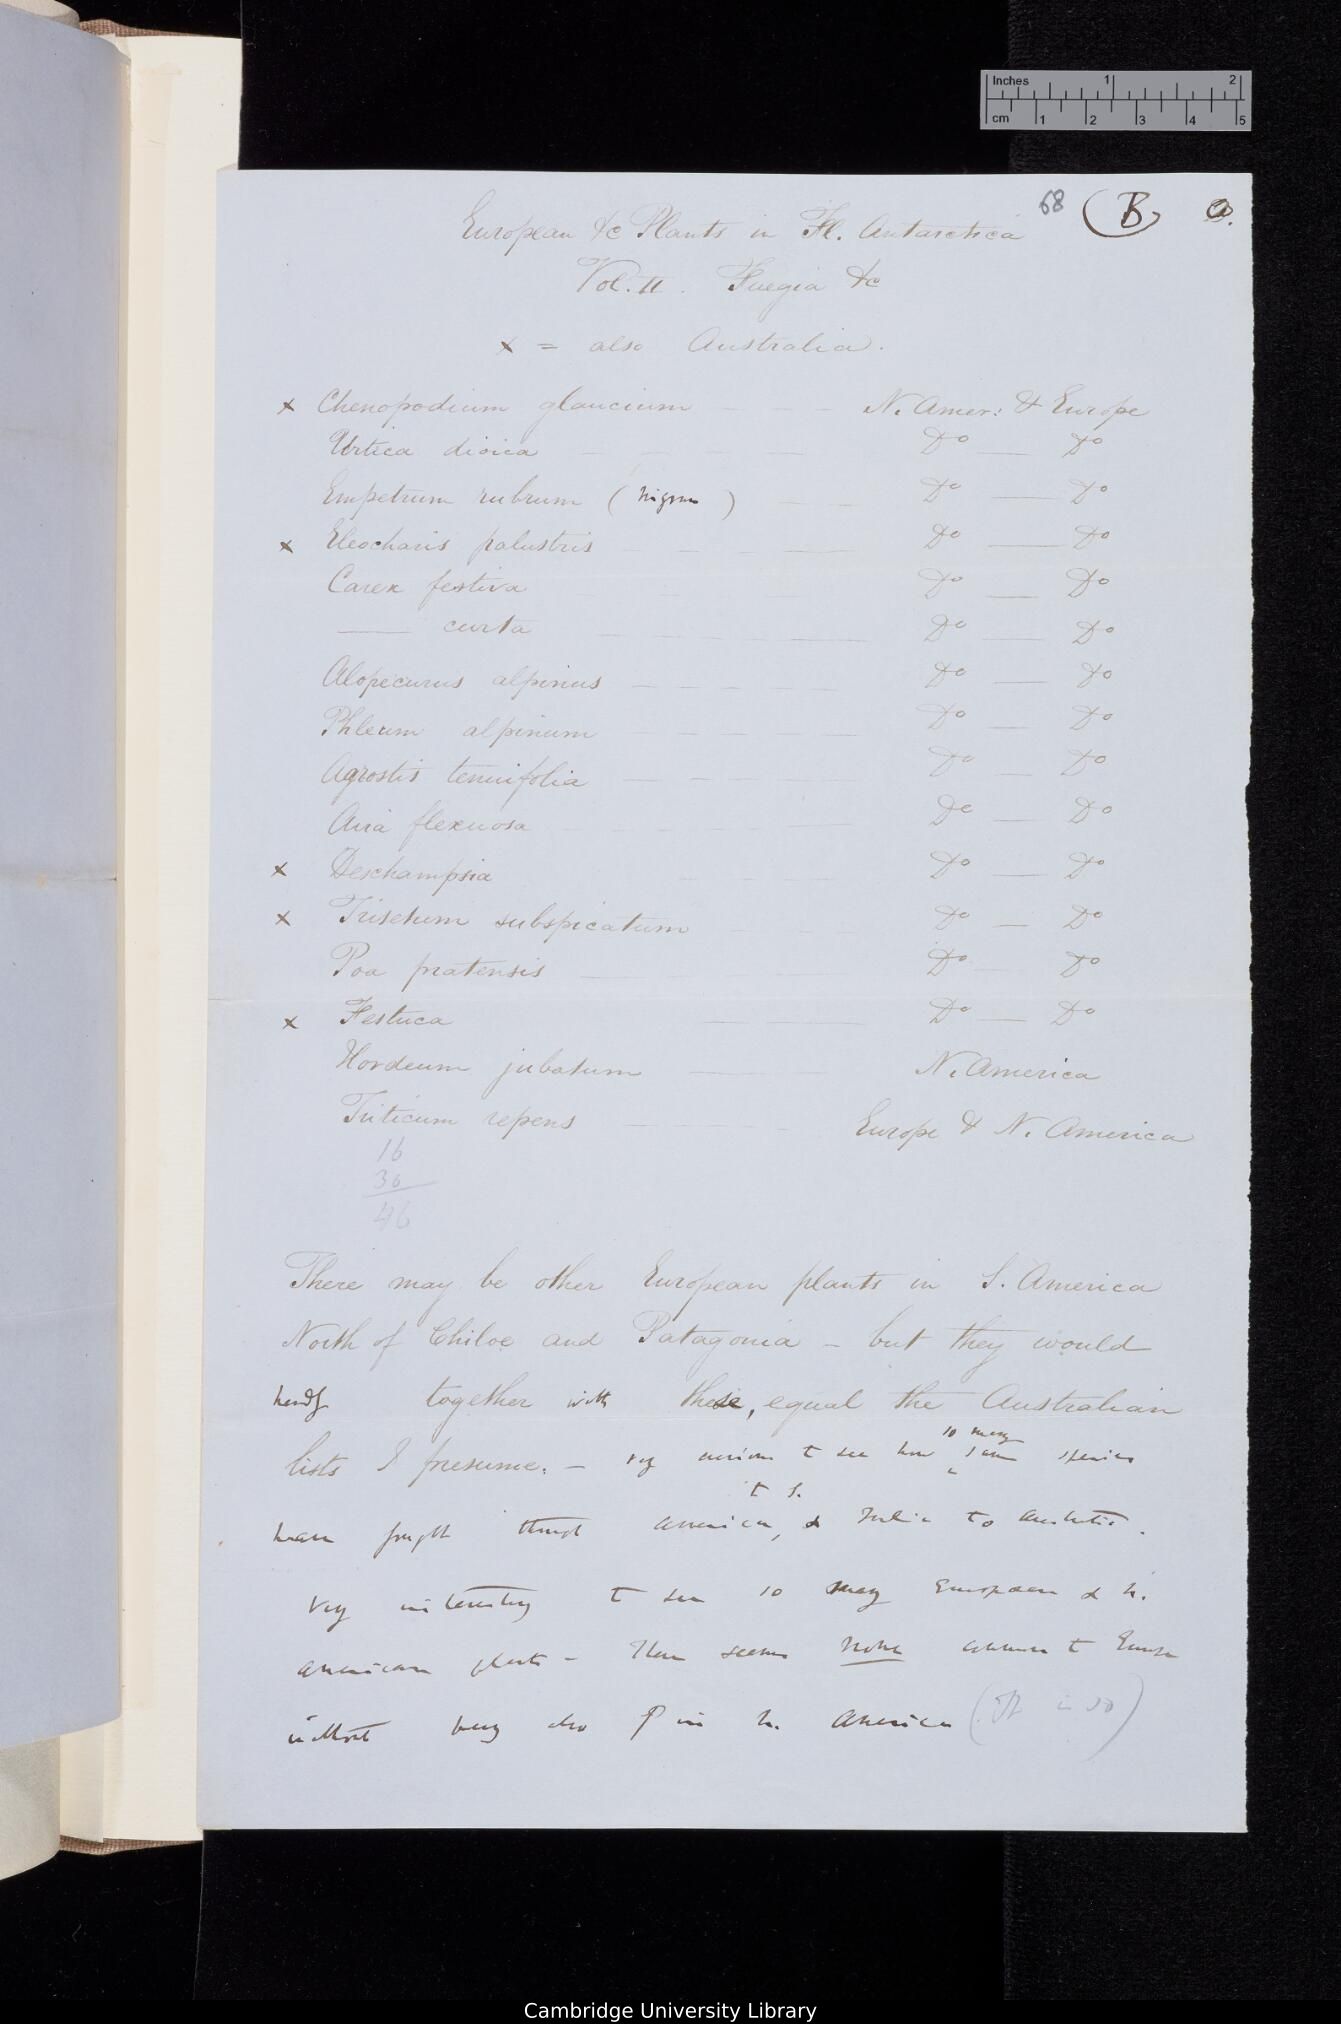 Inches 1 2
cm 1 2 3 4 5
68 B a.
European &c Plants in Fl. Antarctica
Vol. II. Fuegia &c
x = also Australia.
x Chenopodium glaucium - - - N. Amer: & Europe
Urtica dioica - - - - Do — Do
Empetrum rubrum (nigrum) - - Do — Do
x Eleocharis palustris - - - - Do — Do
Carex festiva - - - - Do — Do
— curta - - - - Do — Do
Alopecurus alpinus - - - - Do — Do
Phleum alpinum - - - - Do — Do
Agrostis tenuifolia - - - - Do — Do
Aira flexuosa - - - - Do — Do
x Deschampsia - - - Do — Do
x Trisetum subspicatum - - - Do — Do
Poa pratensis - - - Do — Do
x Festuca - - - Do — Do
Hordeum jubatum - - - N. America
Triticum repens - - - Europe & N. America
16
30
46
There may be other European plants in S. America
North of Chiloe and Patagonia – but they would
hardly together with these, equal the Australian
lists I presume. – very curious to see how so many same species
have through America, to S. & India to
Very interesting to see so many European & N.
American plants – There seems none common to Europe
without being also in N. America (It is so)
Cambridge University Library